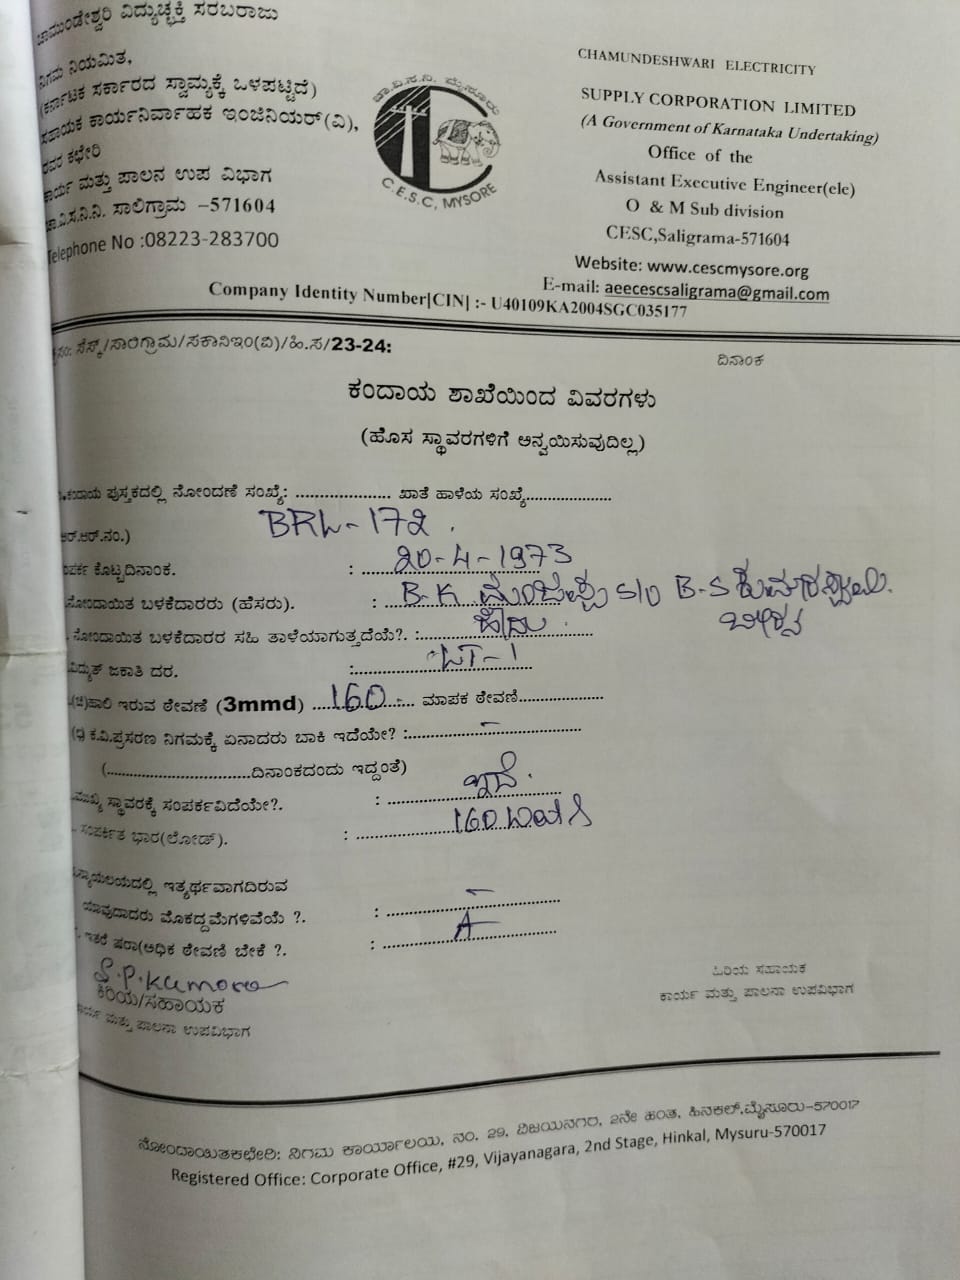 ಚಾಮುಂಡೇಶ್ವರಿ ವಿದ್ಯುಚ್ಛಕ್ತಿ ಸರಬರಾಜು
ನಿಗಮ ನಿಯಮಿತ,
(ಕರ್ನಾಟಕ ಸರ್ಕಾರದ ಸ್ವಾಮ್ಯಕ್ಕೆ ಒಳಪಟ್ಟಿದೆ)
ಸಹಾಯಕ ಕಾರ್ಯನಿರ್ವಾಹಕ ಇಂಜಿನಿಯರ್(ವಿ),
ರವರ ಕಛೇರಿ
ಕಾರ್ಯ ಮತ್ತು ಪಾಲನ ಉಪ ವಿಭಾಗ
ಚಾ.ವಿ.ಸ.ನಿ.ನಿ. ಸಾಲಿಗ್ರಾಮ –571604
Telephone No :08223-283700
ಚಾ.ವಿ.ಸ.ನಿ. ಮೈಸೂರು
C.E.S.C, MYSORE
CHAMUNDESHWARI ELECTRICITY
SUPPLY CORPORATION LIMITED
(A Government of Karnataka Undertaking)
Office of the
Assistant Executive Engineer(ele)
O & M Sub division
CESC,Saligrama-571604
Website: www.cescmysore.org
E-mail: aeecescsaligrama@gmail.com
Company Identity Number|CIN| :- U40109KA2004SGC035177
ಸೆಸ್ಕ್/ಸಾಲಿಗ್ರಾಮ/ಸಕಾನಿಇಂ(ವಿ)/ಹಿ.ಸ/23-24: ದಿನಾಂಕ
ಕಂದಾಯ ಶಾಖೆಯಿಂದ ವಿವರಗಳು
(ಹೊಸ ಸ್ಥಾವರಗಳಿಗೆ ಅನ್ವಯಿಸುವುದಿಲ್ಲ)
ಕಂದಾಯ ಪುಸ್ತಕದಲ್ಲಿ ನೋಂದಣೆ ಸಂಖ್ಯೆ: .................... ಖಾತೆ ಹಾಳೆಯ ಸಂಖ್ಯೆ..................
ಆರ್.ಆರ್.ನಂ.) BRL-172 .
ಸಂಪರ್ಕ ಕೊಟ್ಟದಿನಾಂಕ. : 20-4-1973
ನೋಂದಾಯಿತ ಬಳಕೆದಾರರು (ಹೆಸರು). : B.K S/O B-S
ನೋಂದಾಯಿತ ಬಳಕೆದಾರರ ಸಹಿ ತಾಳೆಯಾಗುತ್ತದೆಯೆ?. : ಹೌದು.
ವಿದ್ಯುತ್ ಜಕಾತಿ ದರ. : LT-1
ಹಾಲಿ ಇರುವ ಠೇವಣೆ (3mmd) 160 - ಮಾಪಕ ಠೇವಣಿ..................
ಕ.ವಿ.ಪ್ರಸರಣ ನಿಗಮಕ್ಕೆ ಏನಾದರು ಬಾಕಿ ಇದೆಯೇ? : –
(..............................ದಿನಾಂಕದಂದು ಇದ್ದಂತೆ)
ಮುಖ್ಯ ಸ್ಥಾವರಕ್ಕೆ ಸಂಪರ್ಕವಿದೆಯೇ?. : ಇದೆ.
ಸಂಪರ್ಕಿತ ಭಾರ(ಲೋಡ್). : 160
ನ್ಯಾಯಲಯದಲ್ಲಿ ಇತ್ಯರ್ಥವಾಗದಿರುವ
ಯಾವುದಾದರು ಮೊಕದ್ದಮೆಗಳಿವೆಯೆ ?. : –
ಇತರೆ ಷರಾ(ಅಧಿಕ ಠೇವಣಿ ಬೇಕೆ ?. :
S.P.Kumara
ಕಿರಿಯ/ಸಹಾಯಕ
ಕಾರ್ಯ ಮತ್ತು ಪಾಲನಾ ಉಪವಿಭಾಗ
ಹಿರಿಯ ಸಹಾಯಕ
ಕಾರ್ಯ ಮತ್ತು ಪಾಲನಾ ಉಪವಿಭಾಗ
ನೋಂದಾಯಿತಕಛೇರಿ: ನಿಗಮ ಕಾರ್ಯಾಲಯ, ನಂ. 29, ವಿಜಯನಗರ, 2ನೇ ಹಂತ, ಹಿನಕಲ್,ಮೈಸೂರು-570017
Registered Office: Corporate Office, #29, Vijayanagara, 2nd Stage, Hinkal, Mysuru-570017